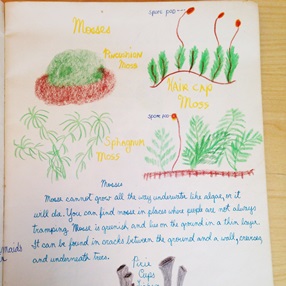 Mosses
spore pod
Pincushion
Moss
Hair cap
Moss
spore pod
Sphagnum
Moss
Mosses
Mosse cannot grow all the way underwater like algae, or it
will die. You can find mosse in places where people are not always
tramping. Mosse is greenish and lies on the ground in a thin layer.
It can be found in cracks between the ground and a wall, crevices,
and underneath trees.
Pixie
Caps